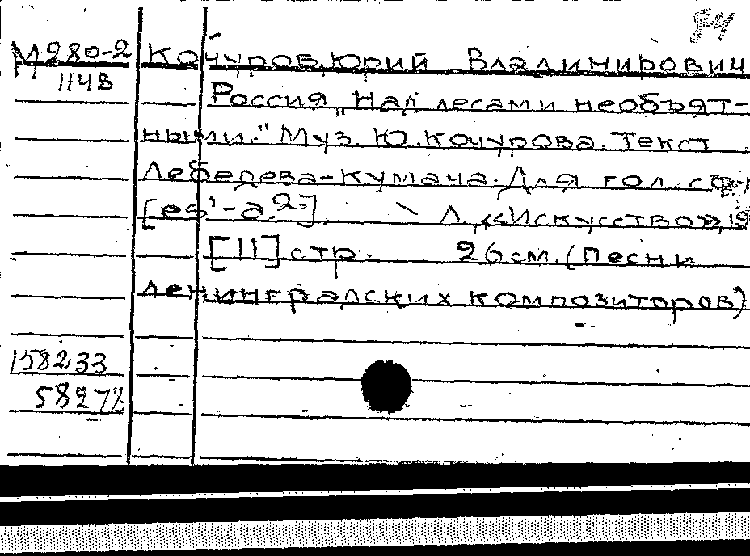 94
М280-2 Кочуров, Юрий Владимирович
114в Россия „Над лесами необъят-
ными." Муз. Ю. Кочурова. Текст
Лебедева-Кумача. Для гол. с
[es¹-a²] Л., «Искусство»,
[11] стр. 26 см. (Песни
ленинградских композиторов)
158233